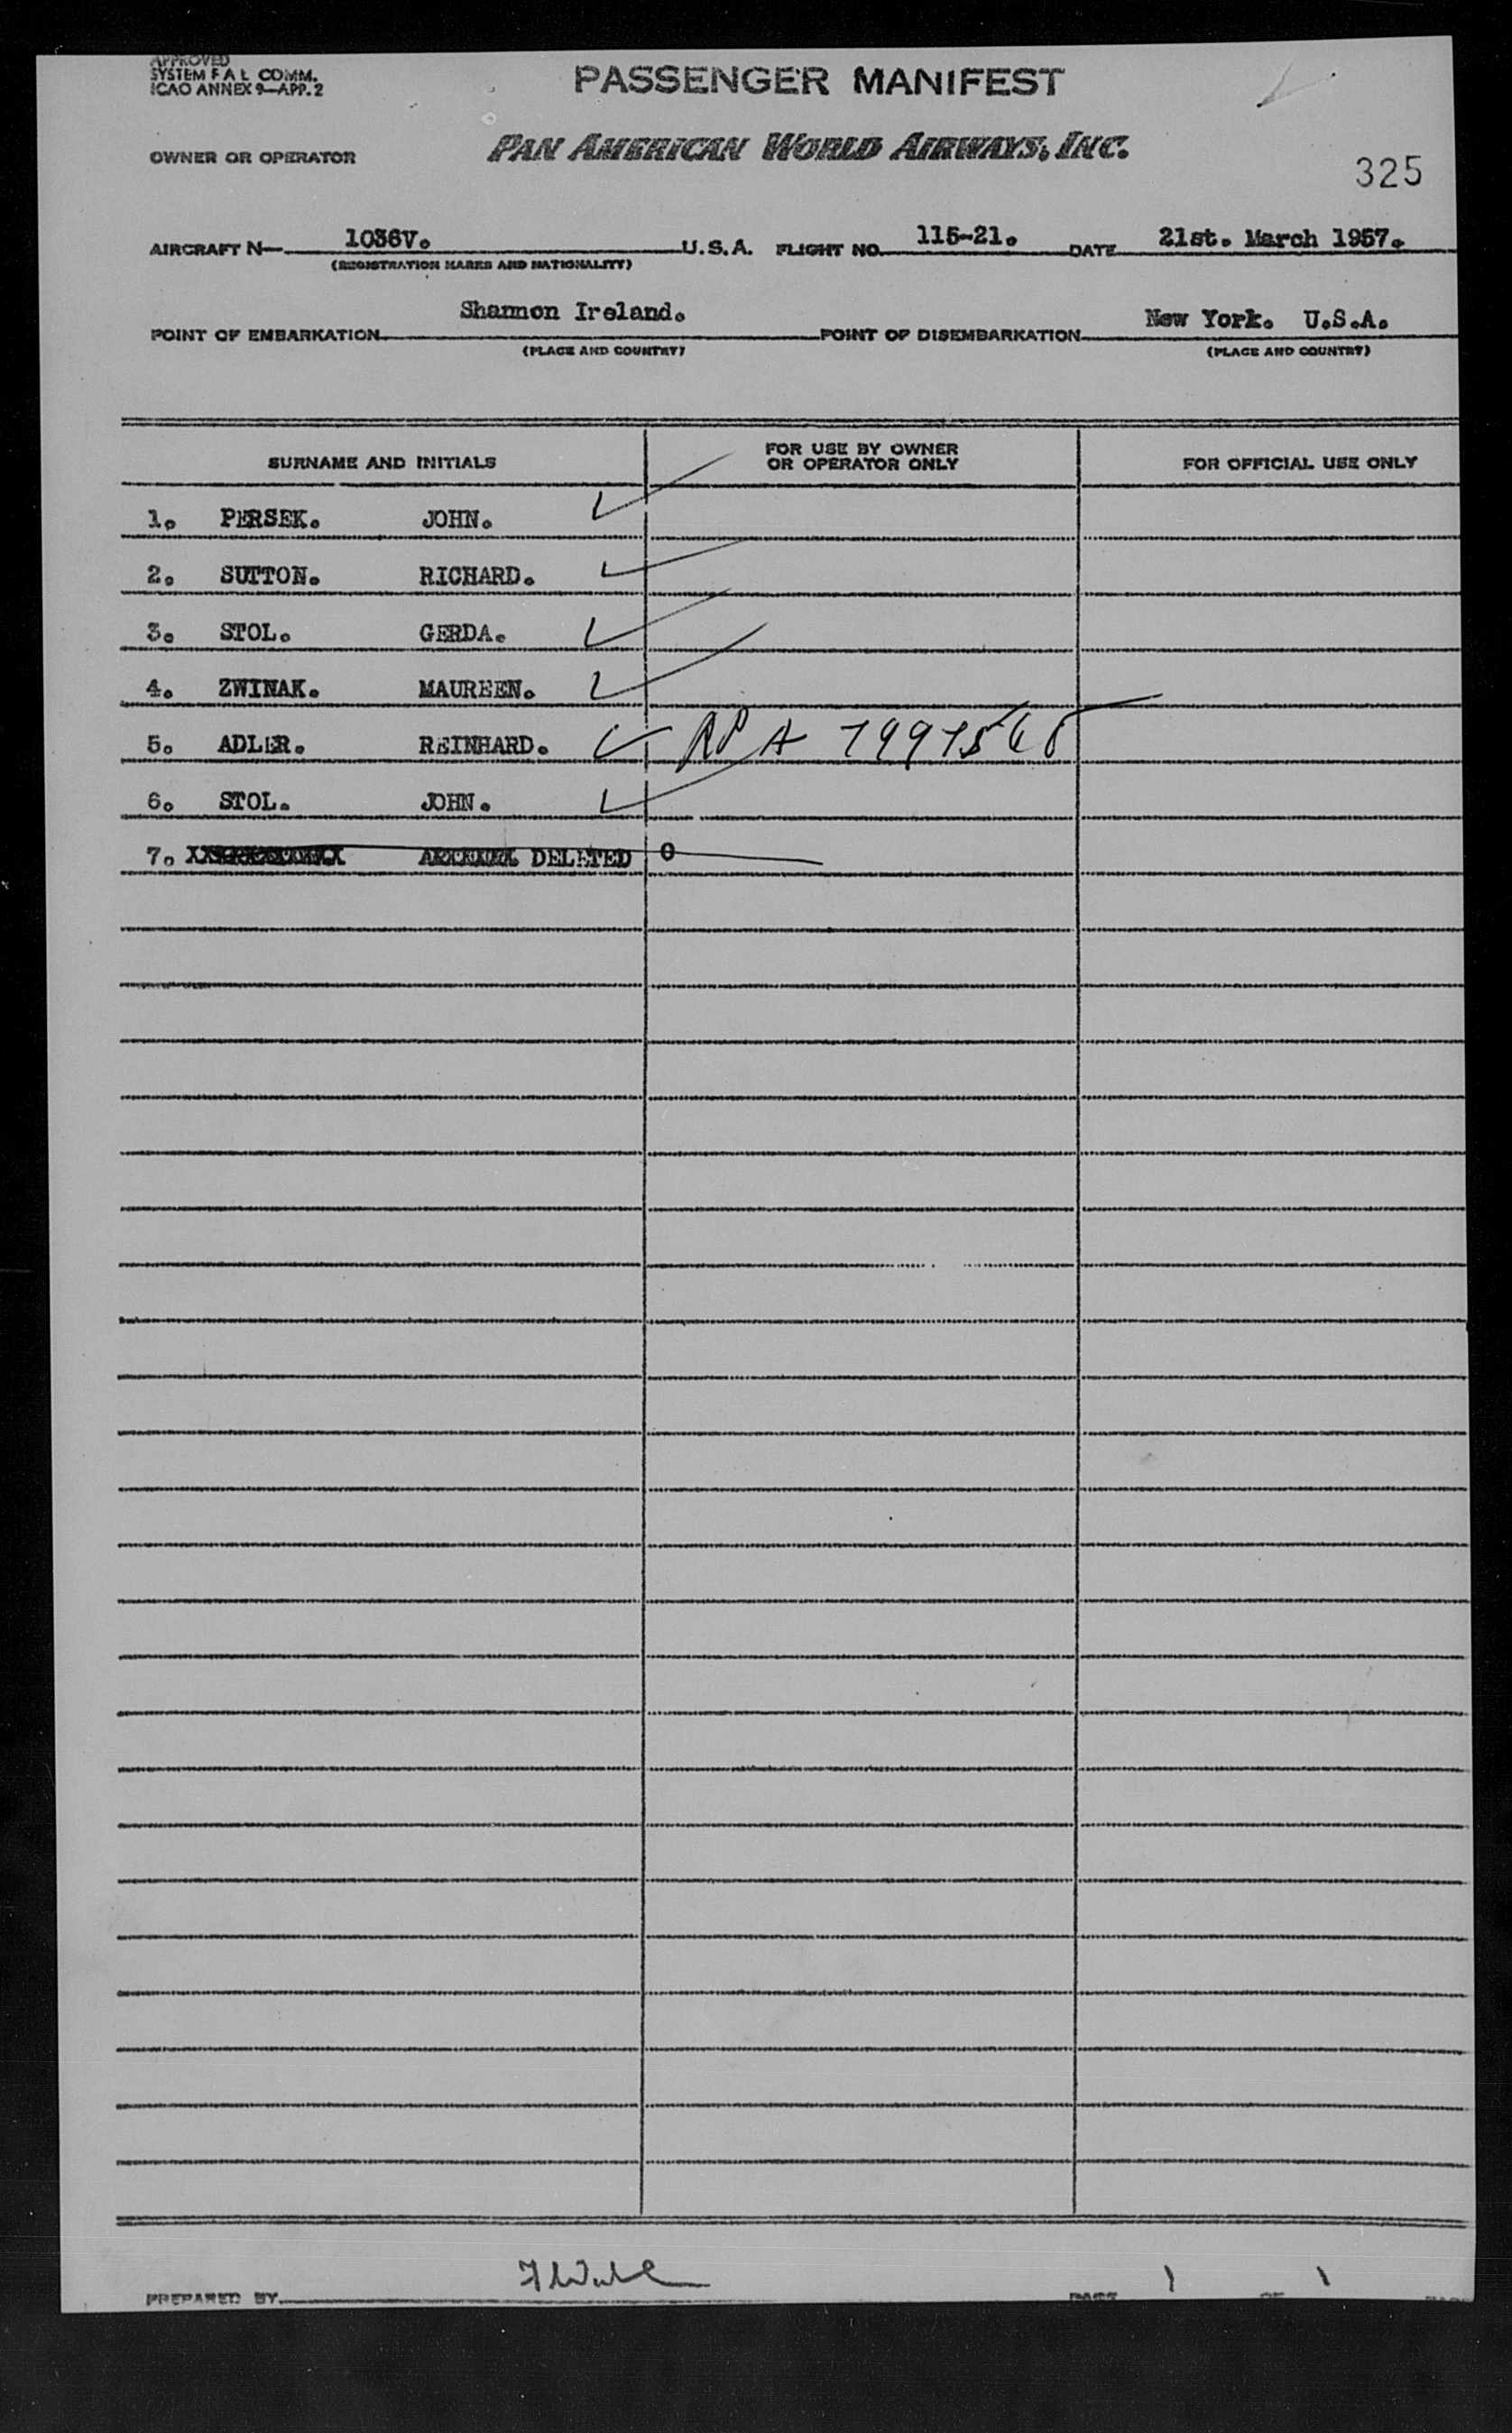 APPROVED
SYSTEM F A L COMM.
ICAO ANNEX 9—APP. 2
PASSENGER MANIFEST
OWNER OR OPERATOR PAN AMERICAN WORLD AIRWAYS, INC.
325
AIRCRAFT N— 1036V. U.S.A. FLIGHT NO. 115-21. DATE 21st. March 1957.
(REGISTRATION MARKS AND NATIONALITY)
POINT OF EMBARKATION Shannon Ireland. POINT OF DISEMBARKATION New York. U.S.A.
(PLACE AND COUNTRY) (PLACE AND COUNTRY)
SURNAME AND INITIALS FOR USE BY OWNER OR OPERATOR ONLY FOR OFFICIAL USE ONLY
1. PERSEK. JOHN.
2. SUTTON. RICHARD.
3. STOL. GERDA.
4. ZWINAK. MAUREEN.
5. ADLER. REINHARD. A
6. STOL. JOHN.
7. DELETED 0
PREPARED BY PAGE 1 OF 1